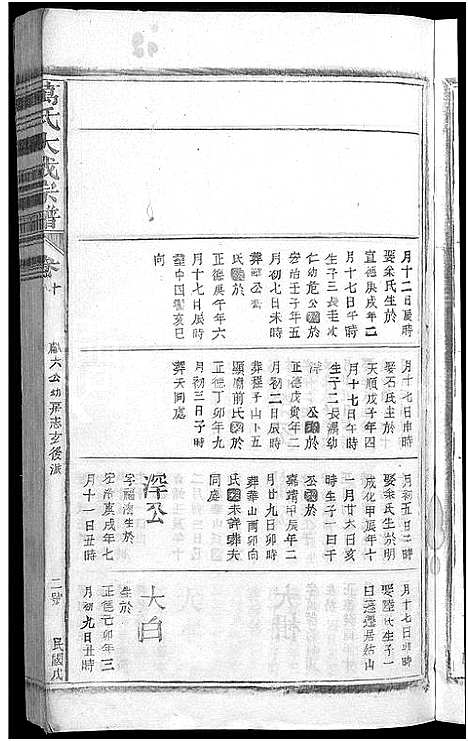 萬氏大成宗譜
卷十
獻六公幼房志玄後派
二號
民國戊
月十二日辰時
娶余氏生於
宣德庚戌年二
月十七日午時
生子三長
仁幼危公歿於
弘治壬子年五
月初七日未時
葬
氏歿於
正德庚午年六
月十七日午時
葬中四渠亥巳
向
月十七日申時
娶石氏生於
天順戊子年四
月十七日午時
生子二長深幼
公歿於
正德戊寅年二
月初二日辰時
葬程子山卜五
顯廟前氏歿於
正德丁卯年九
月初三日子時
葬夫同處
月初五日子時
娶余氏生於明
成化甲辰年十
一月廿六日亥
時生子一曰干
公歿於
嘉靖甲辰年二
月廿九日卯時
葬華山酉卯向
氏歿未詳葬夫
同處
深公
字福演生於
弘治庚戌年七
月十一日丑時
月十七日卯時
娶陸氏生子一
曰遷居結山
大白
生於
正德己卯年三
月初九日丑時